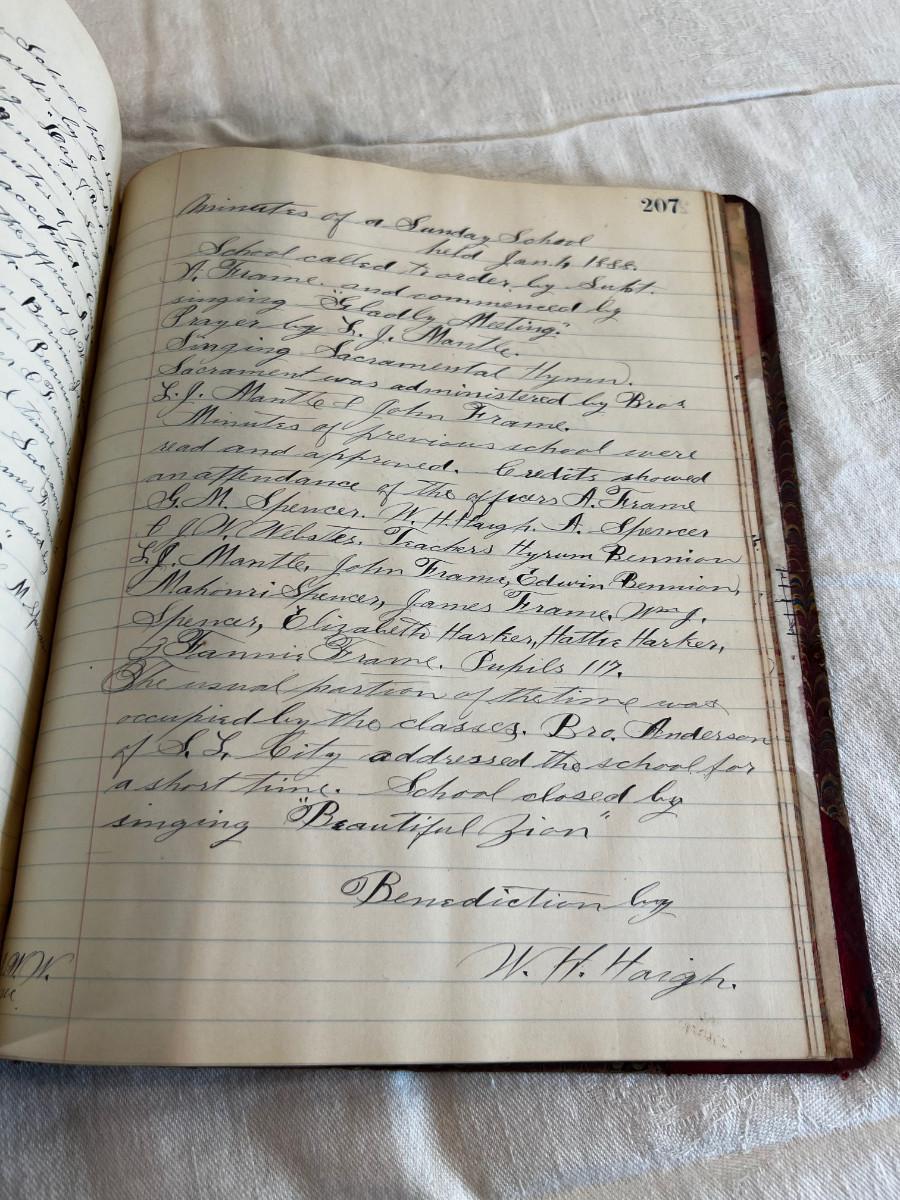 207
Minutes of a Sunday School
held Jan. 1, 1888.
School called to order by Supt.
A. Frame and commenced by
singing "Gladly Meeting."
Prayer by L. J. Mantle.
Singing Sacramental Hymn.
Sacrament was administered by Bros
L. J. Mantle & John Frame.
Minutes of previous school were
read and approved. Credits showed
an attendance of the officers A. Frame
G. M. Spencer. W. H. Haigh. A. Spencer
& J. W. Webster. Teachers Hyrum Bennion
L. J. Mantle, John Frame, Edwin Bennion,
Mahonri Spencer, James Frame, Wm J.
Spencer, Elizabeth Harker, Hattie Harker,
& Fannie Frame. Pupils 117.
The usual portion of the time was
occupied by the classes. Bro. Anderson
of S. L. City addressed the school for
a short time. School closed by
singing "Beautiful Zion"
Benediction by
W. H. Haigh.